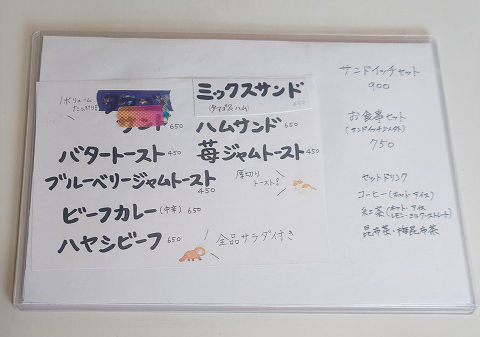 ボリューム
たっぷり!
ミックスサンド
(タマゴ&ハム) 650
サンド 650
ハムサンド 650
バタートースト 450
苺ジャムトースト 450
ブルーベリージャムトースト 450
厚切り
トースト!
ビーフカレー(中辛) 650
ハヤシビーフ 650
全品サラダ付き
サンドイッチセット
900
お食事セット
750
セットドリンク
コーヒー(ホット アイス)
紅茶(ホット・アイス
レモン・ミルク・ストレート)
昆布茶・梅昆布茶